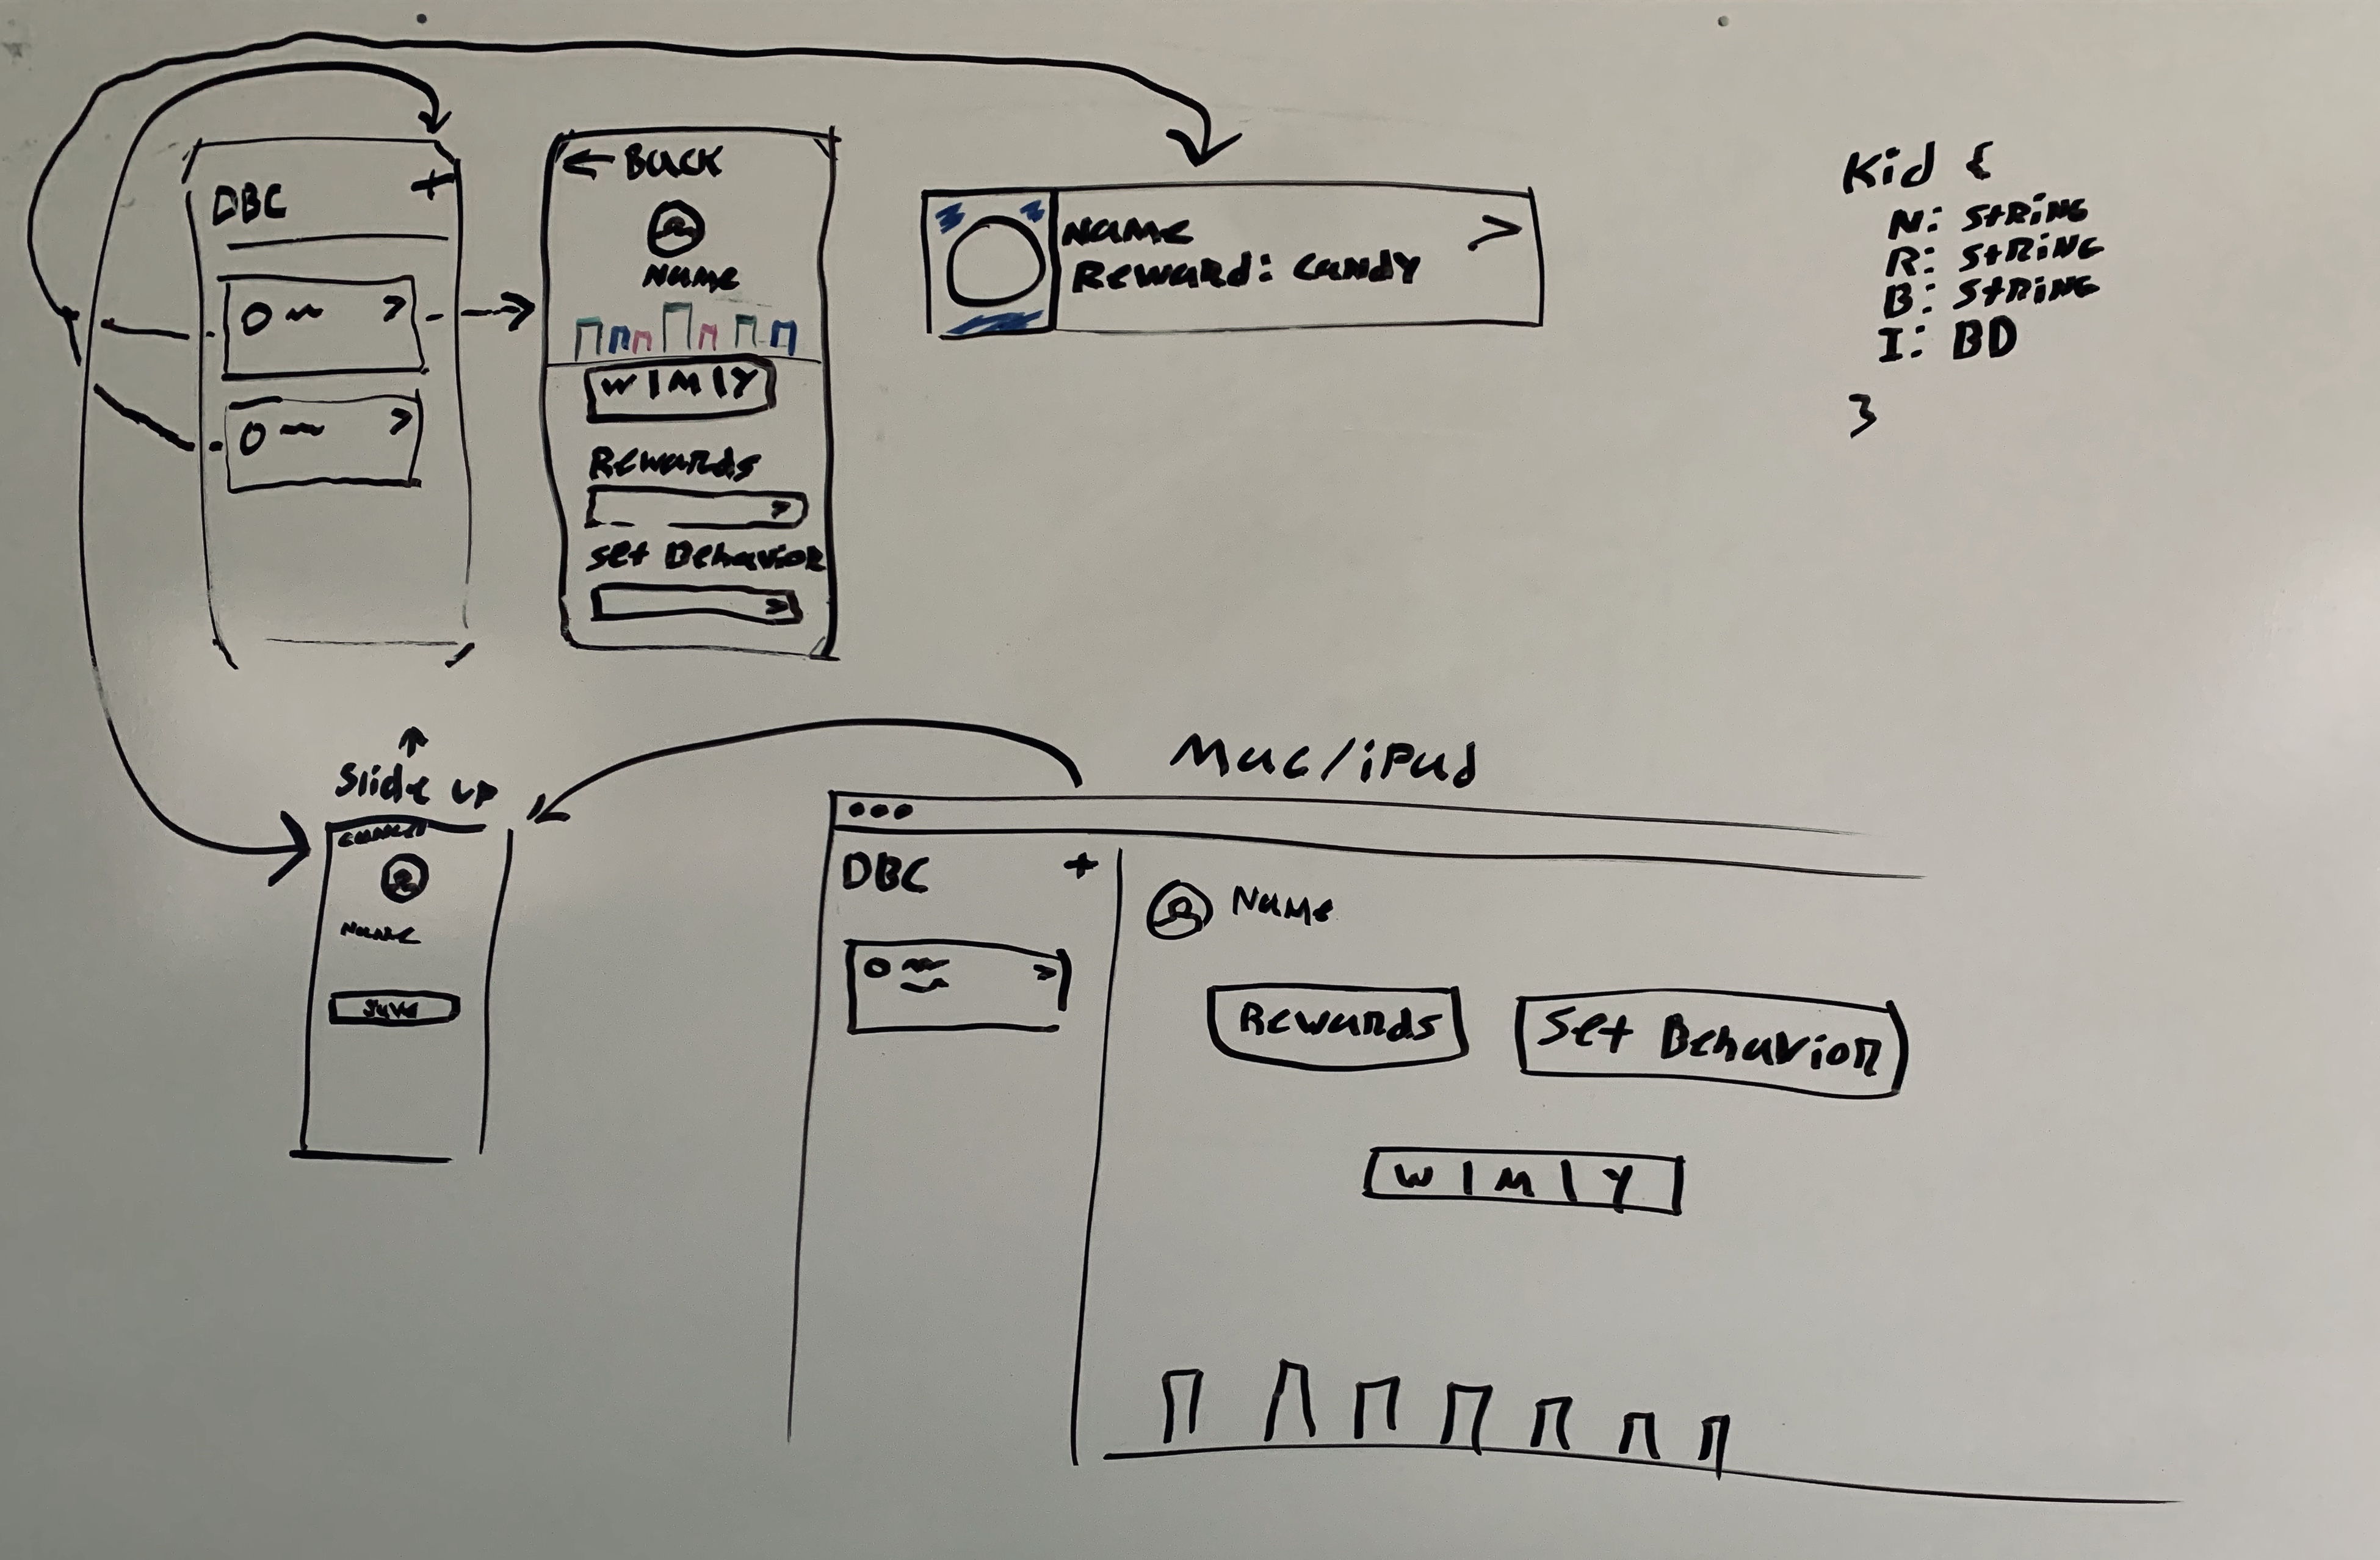 DBC +
← Back
Name
W | M | Y
Rewards
>
Set Behavior
>
Name
Reward: Candy
>
Kid {
N: String
R: String
B: String
I: BD
}
Slide up
Cancel
Name
Save
Mac/iPad
DBC +
Name
Rewards
Set Behavior
W | M | Y